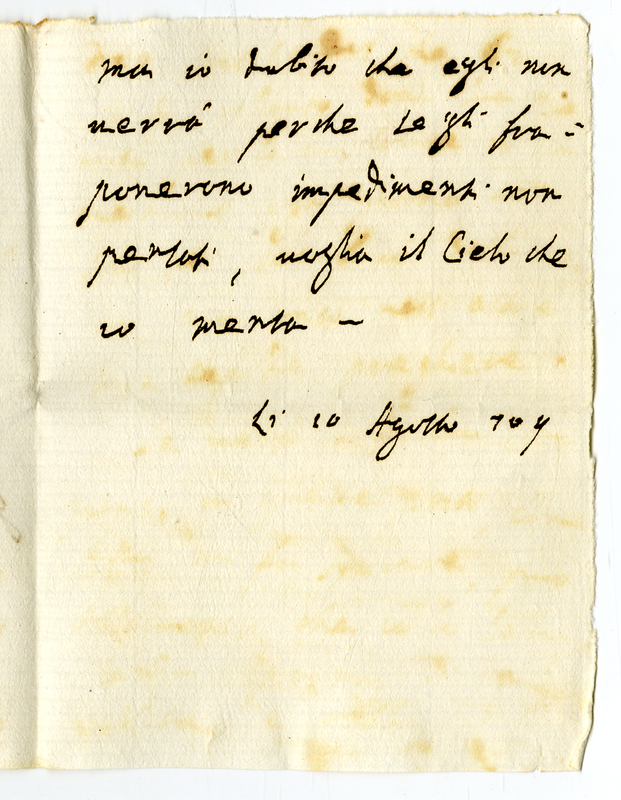 ma io dubito che egli non
uerrà perche se gli fra=
ponerono impedimenti non
pensati, uoglia il Cielo che
io menta –
Li 10 Agosto 709